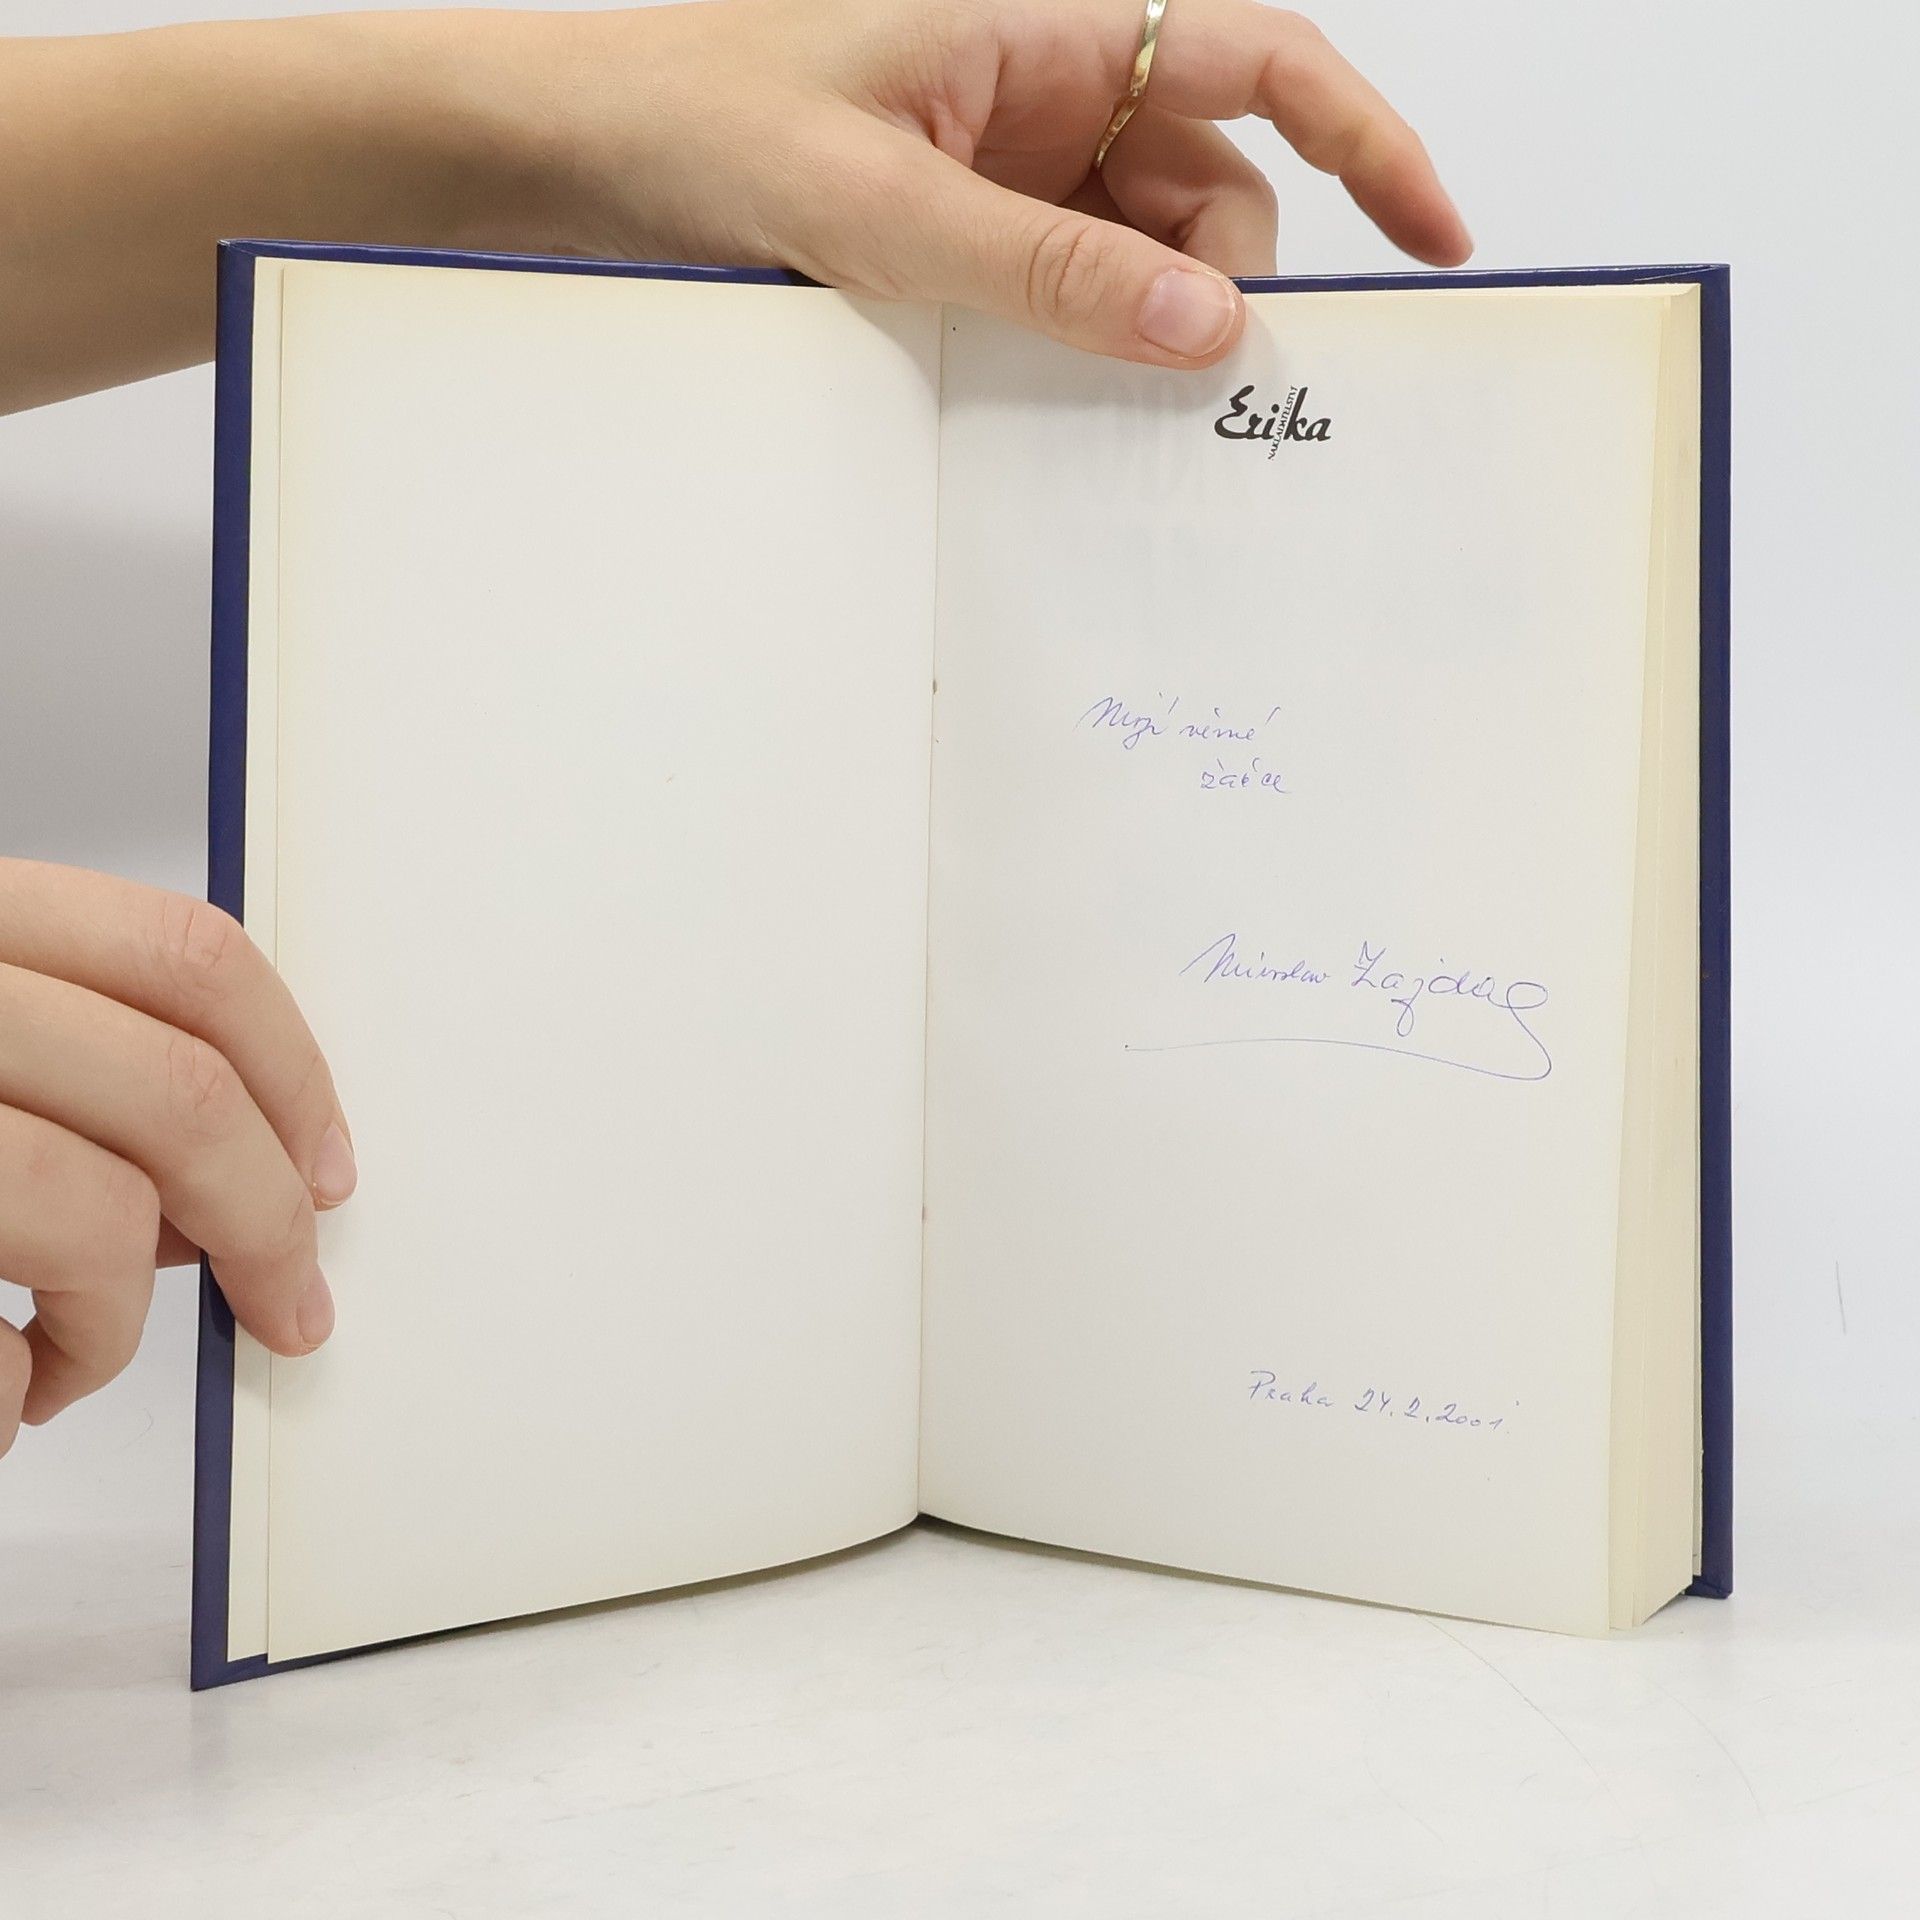 Erika
NAKLADATELSTVÍ
Mojí věrné
žačce
Miroslav Žajda
Praha 24.2.2001.